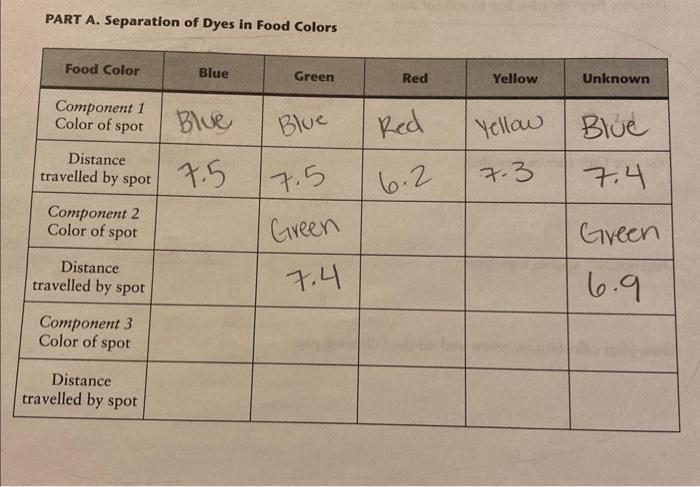 PART A. Separation of Dyes in Food Colors
Food Color Blue Green Red Yellow Unknown
Component 1
Color of spot Blue Blue Red Yellow Blue
Distance
travelled by spot 7.5 7.5 6.2 7.3 7.4
Component 2
Color of spot Green Green
Distance
travelled by spot 7.4 6.9
Component 3
Color of spot
Distance
travelled by spot